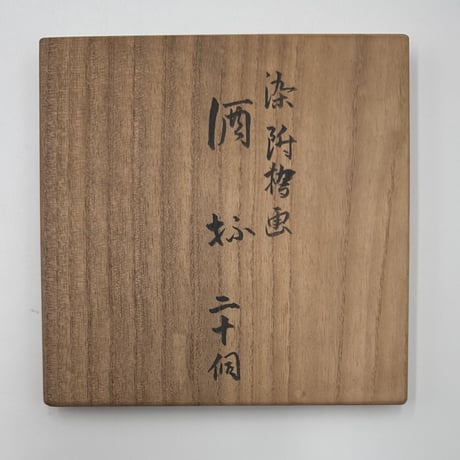 染附画
酒杯 二十個